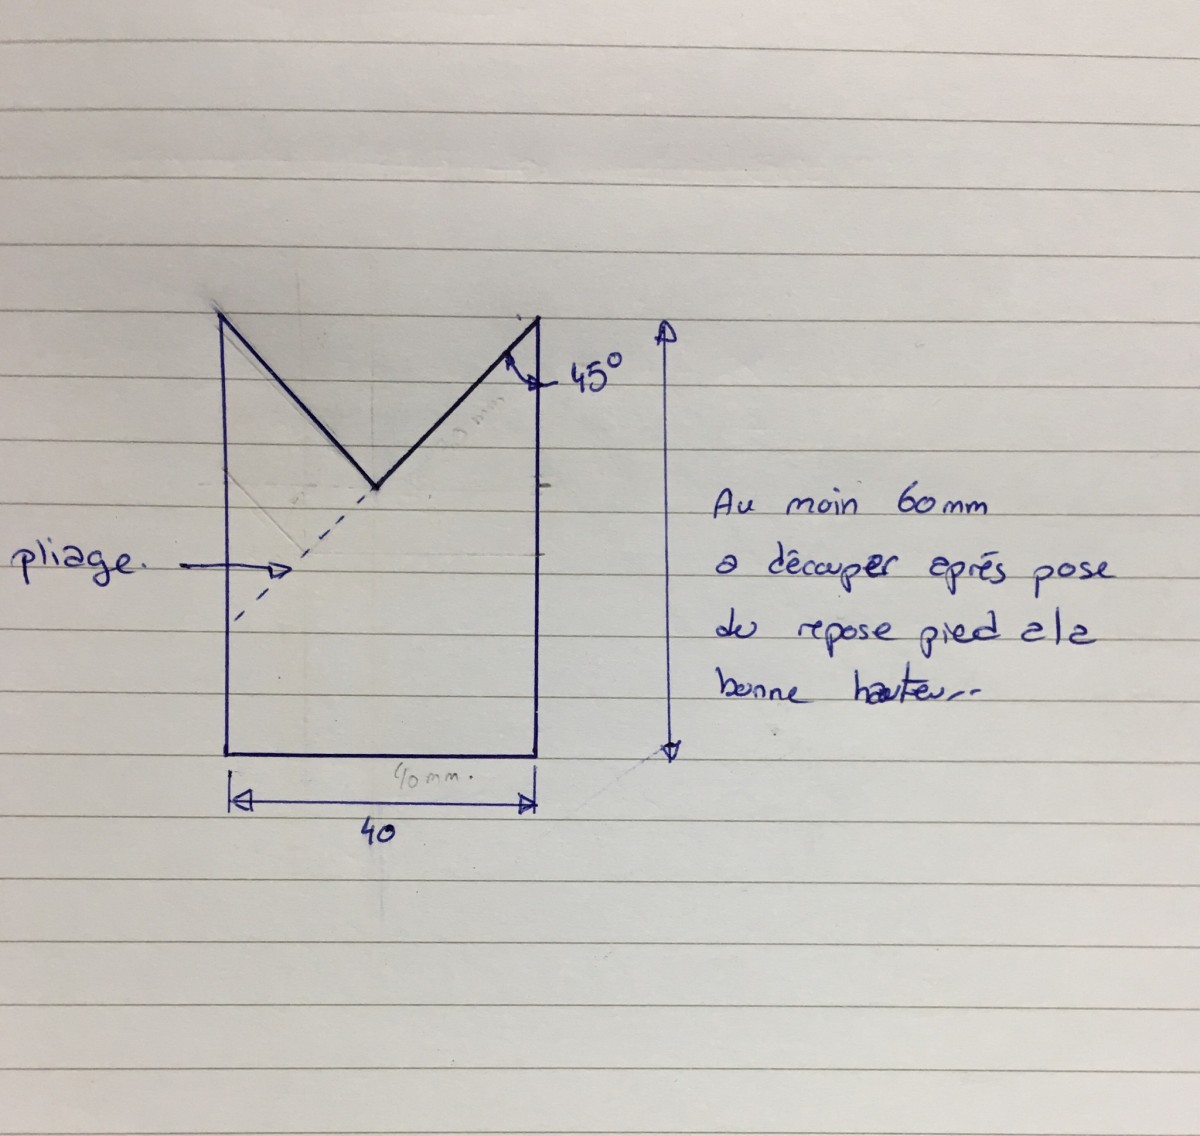 45°
Au moin 60mm
pliage.
a découper après pose
du repose pied a la
bonne hauteur
40mm.
40